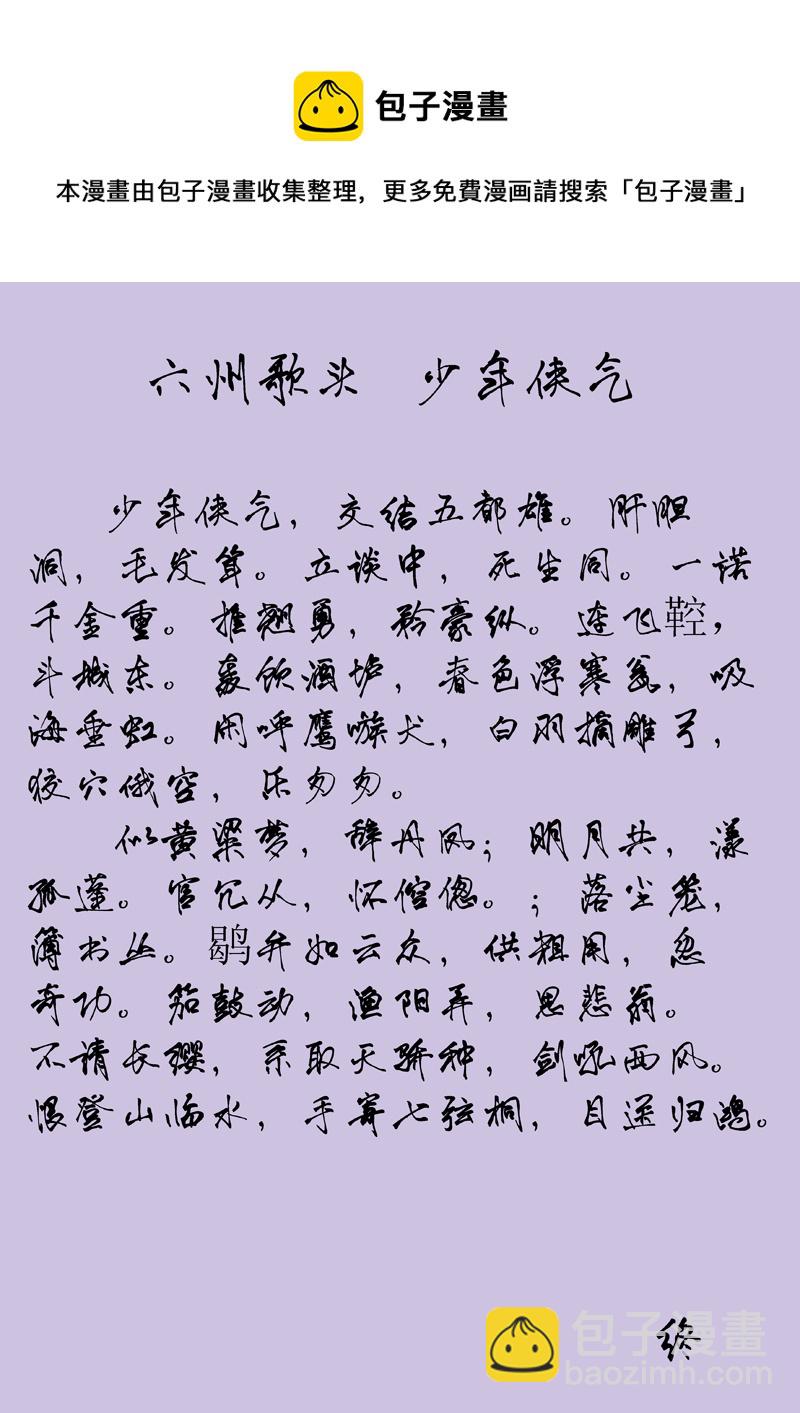 包子漫畫
本漫畫由包子漫畫收集整理，更多免費漫画請搜索「包子漫畫」
六州歌头 少年侠气
少年侠气，交结五都雄。肝胆
洞，毛发耸。立谈中，死生同。一诺
千金重。推翘勇，矜豪纵。连飞鞚，
斗城东。轰饮酒垆，春色浮寒瓮，吸
海垂虹。闲呼鹰嗾犬，白羽摘雕弓，
狡穴俄空，乐匆匆。
似黄粱梦，辞丹凤；明月共，漾
孤蓬。官冗从，怀倥偬。；落尘笼，
簿书丛。鹖弁如云众，供粗用，忽
奇功。笳鼓动，渔阳弄，思悲翁。
不请长缨，系取天骄种，剑吼西风。
恨登山临水，手寄七弦桐，目送归鸿。
终
包子漫畫
baozimh.com